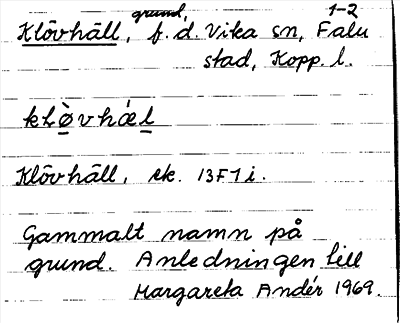 grund, 1-2
Klövhäll, f.d. Vika sn, Falu
stad, Kopp. l.
klö̀vhæl
Klövhäll, ek. 13F7i.
Gammalt namn på
grund. Anledningen till
Margareta Andér 1969.